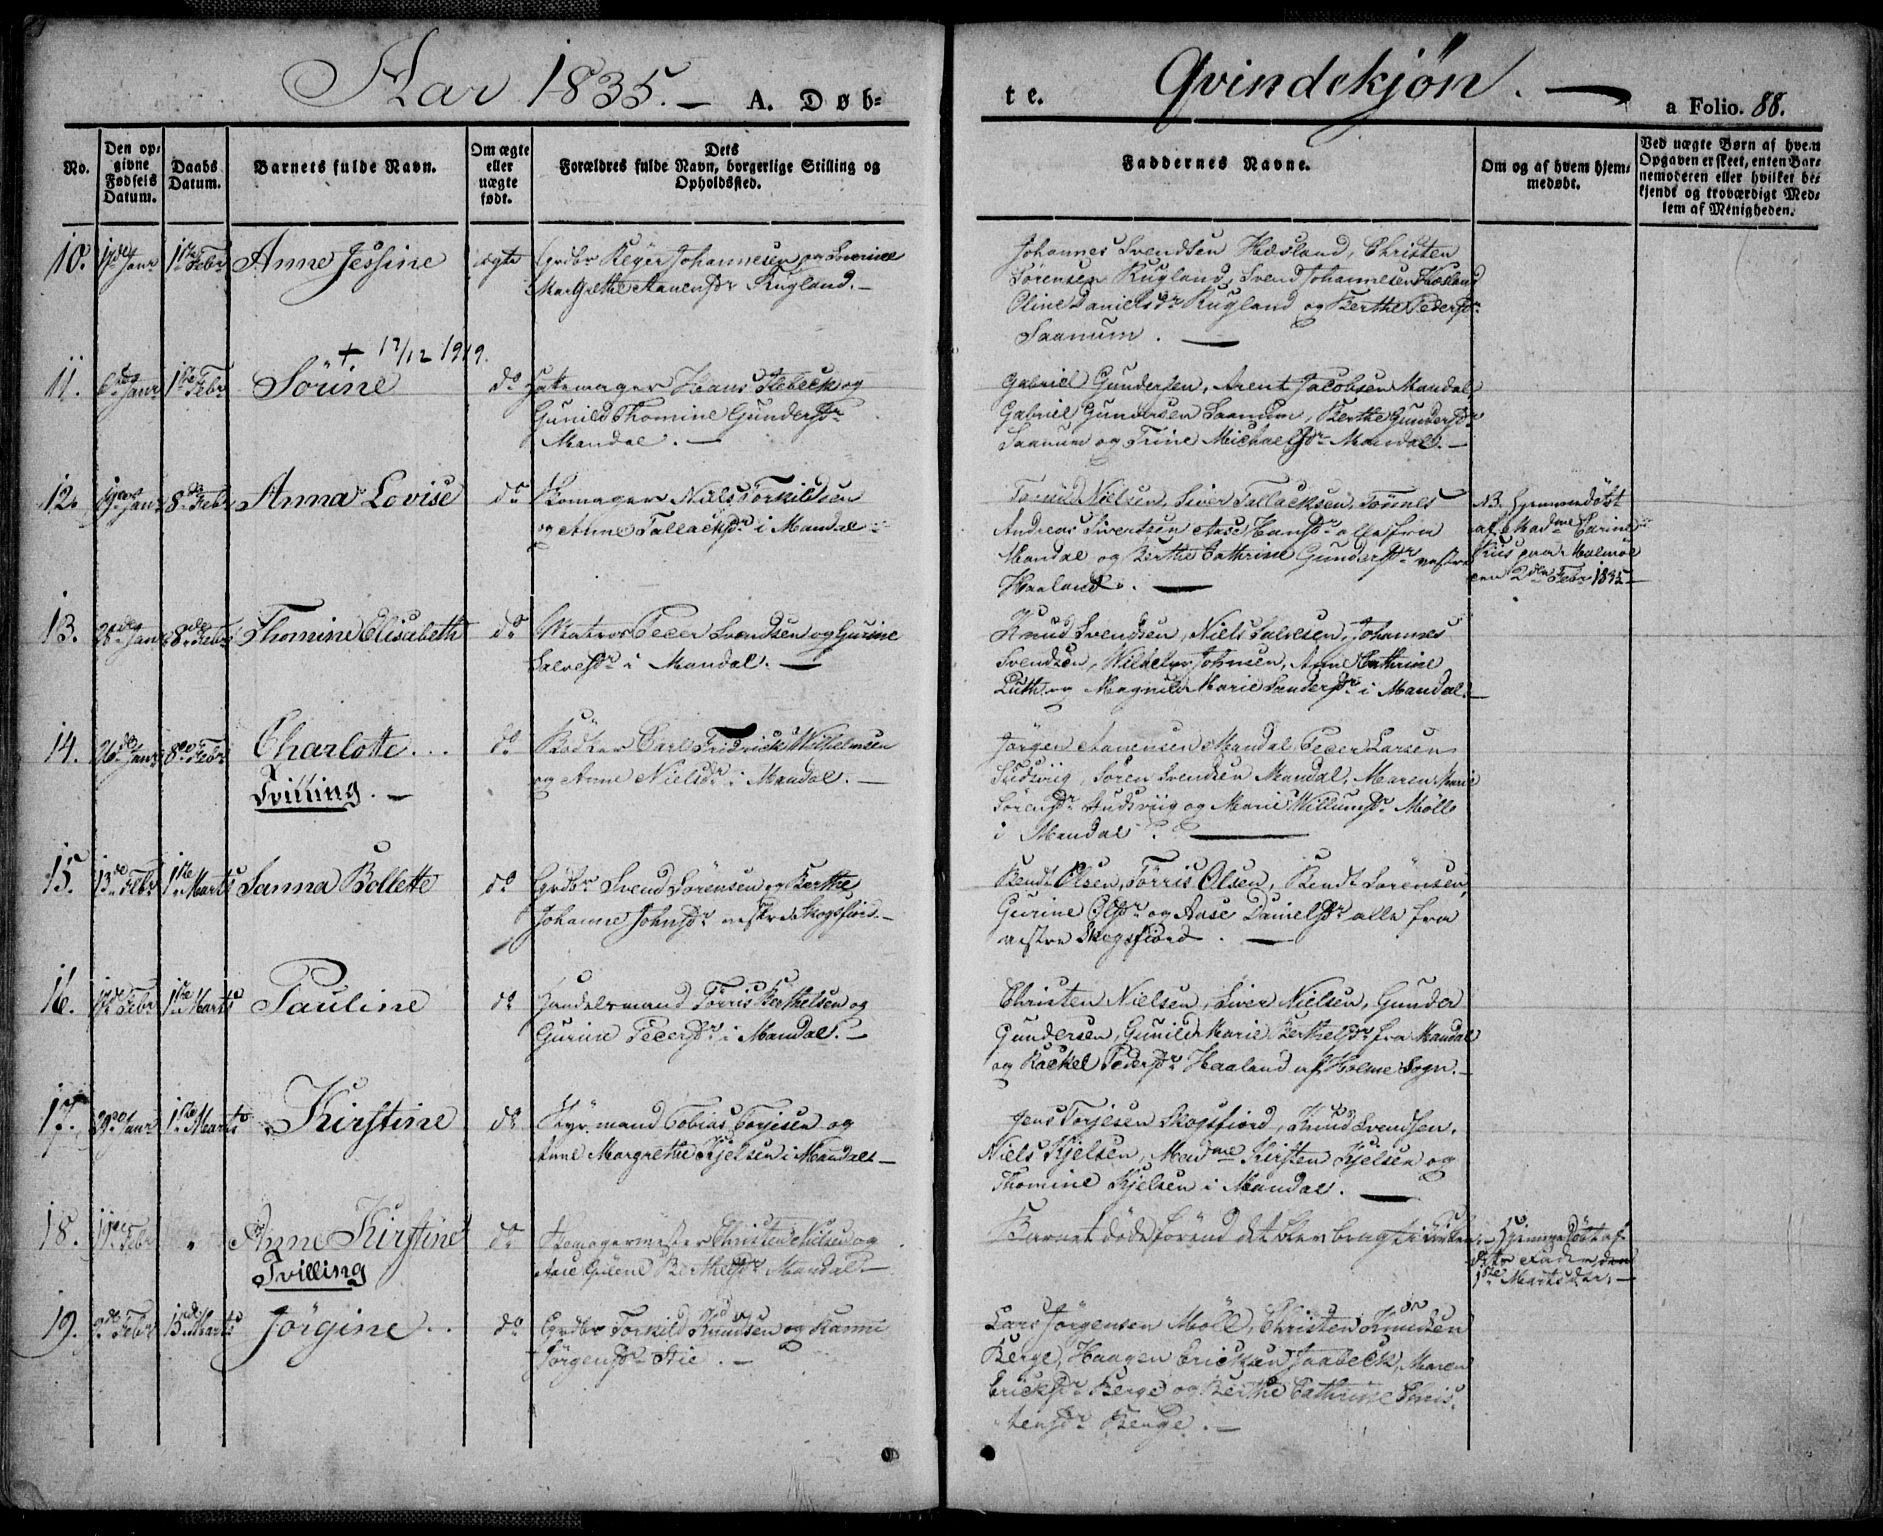 Aar 1835. — A. Døb-
te. Qvindekjøn. — a Folio. 88.
No.
Den op-
givne
Fødsels
Datum.
Daabs
Datum.
Barnets fulde Navn.
Om ægte
eller
uægte
født.
Dets
Forældres fulde Navn, borgerlige Stilling og
Opholdssted.
Faddernes Navne.
Om og af hvem hjem-
medøbt.
Ved uægte Børn af hvem
Opgaven er skeet, enten Bar-
nemoderen eller hvilket be-
kjendt og troværdigt Med-
lem af Menigheden.
10. Janr 1ste Febr Anne Jessine ægte Grdbr Reyer Johannesen og Severine
Margrethe Aanensdr Rugland. —
Johannes Svendsen Hæsland, Christen
Sörensen Rugland, Svend Johannesen Hæsland
Oline Danielsdr Rugland og Berthe Pedersdr
Saanum. —
+ 17/12 1919.
11. 6de Janr 1ste Febr Sörine do Hattemager Hans Flebeck og
Gunild Thomine Gundersdr
Mandal. —
Gabriel Gundersen, Arent Jacobsen Mandal
Gabriel Gundersen Saanum, Berthe Gundersdr
Saanum og Trine Michaelsdr Mandal. —
12. Janr 8de Febr Anna Lovise do Skomager Niels Torkildsen
og Anne Tallacksdr i Mandal
Nielsen, Siver Tallacksen, Tönnes
Andreas Sivertsen Aase Hansdr alle fra
Mandal og Berthe Cathrine Gundersdr vestre
Haaland. —
NB. Hjemmedöbt
af Madme Carine
Kiis paa Malmöe
den 2den Febr 1835 —
13. 28de Janr 8de Febr Thomine Elisabeth do Matros Peder Svendsen og Gurine
Salvesdr i Mandal. —
Knud Svendsen, Niels Salvesen, Johannes
Svendsen, Johnsen, Anne Cathrine
Luth og Magnild Marie Sandersdr i Mandal. —
14. 26de Janr 8de Febr Charlotte . . do Bödker Carl Fridrick Wilhelmsen
Tvilling. —
og Anne Nielsdr i Mandal. —
Jörgen Aanensen Mandal, Peder Larsen
Ludvig, Sören Svendsen Mandal, Maren Marie
Sörensdr Ludsviig og Marie Willumsdr Mölle
i Mandal. —
15. 13de Febr 1ste Marts Sanna Bollette do Grdbr Svend Sörensen og Berthe
Johanne Johnsdr vestre Skogsfiord. —
Bendt Olsen, Törris Olsen, Bendt Sörensen,
Gurine Olsdr og Aase Danielsdr alle fra
vestre Skogsfiord. —
16. Febr 1ste Marts Pauline do Handelsmand Törris Berthelsen og
Gurine Pedersdr i Mandal. —
Christen Nielsen, Siver Nielsen, Gunder
Gundersen, Gunild Marie Berthelsdr fra Mandal
og Rackel Pedersdr Haaland af Holme Sogn. —
17. 29de Janr 1ste Marts Kirstine do Styrmand Tobias Torjesen og
Anne Margrethe Kjelsen i Mandal —
Jens Torjesen Skogsfiord, Knud Svendsen,
Niels Kjelsen, Madme Kirsten Kjelsen og
Thomine Kjelsen i Mandal. —
18. 11te Febr " Anne Kirstine do Skomagermester Christen Nielsen og
Tvilling
Aase Gulene Berthelsdr Mandal —
Barnet döde förend det blev bragt i Kirken. —
Hjemmedöbt af
Fader den
1ste Marts
19. Febr 15de Marts Jörgine . . do Grdbr Torkild Knudsen og Hanne
Jörgensdr Stie. —
Lars Jörgensen Möll, Christen Knudsen
Berge, Haagen Ericksen Jaabeck, Maren
Ericksdr Berge og Berthe Cathrine Chris-
tensdr Berge. —